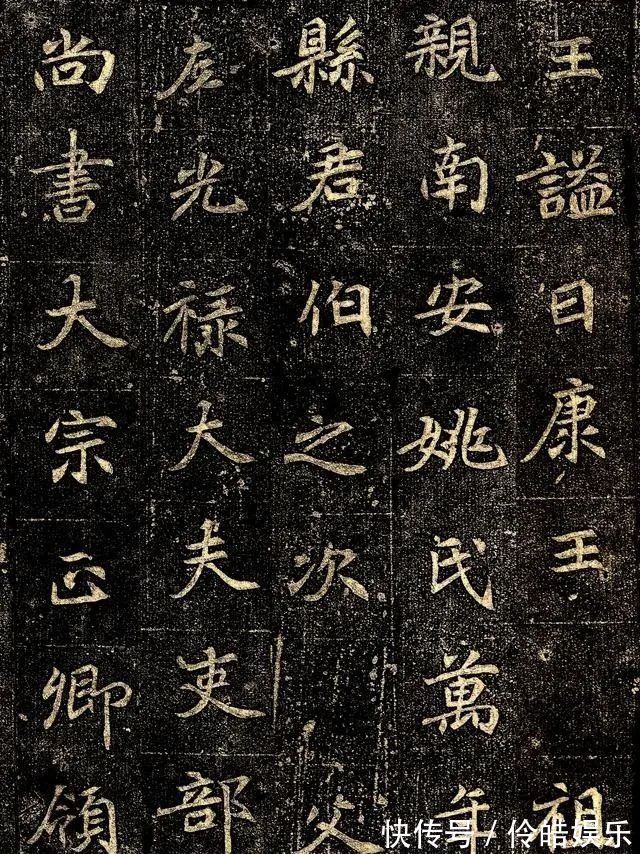 王谥曰康王 祖
親南安姚氏萬年
縣君伯之次 父
左光禄大夫吏部
尚書大宗正卿領
快传号/伶皓娱乐